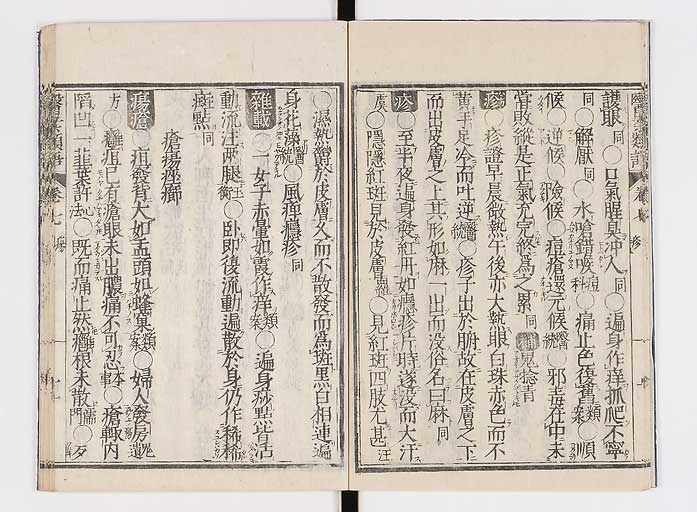 護眼 同 ○口氣腥臭冲人 同 ○遍身作痒抓爬不寧
同 ○解厭 同 ○水嗆錯喉 科 ○痛止色復舊 類案 順
候 ○逆候 ○險候 ○痘瘡還元候 ○邪毒在中未
嘗敗縱是正氣充完終爲之累 同 鬼捻青
疹 ○疹證早晨微熱午後亦大熱眼白珠赤色而不
黄手足冷而吐逆 ○疹子出於腑故在皮膚之下
而出皮膚之上其形如麻一出而没俗名曰麻 同
疹 ○至半夜遍身發紅丹如癮疹片時遂没而大汗
虞 ○隱隱紅斑見於皮膚 ○見紅斑四肢尤甚 汪
○濕熱欝於皮膚久而不散發而爲斑黒白相連遍
身花藻 ○風痺癮疹 同
雜載 ○一女子赤暈如霞作痒 類案 ○遍身痧點皆活
動流注兩腿 ○卧即復流動遍散於身仍作稀稀
斑點 同
瘡瘍痤癤
瘍瘡 ○疽發背大如盂頭如蜂窠 類案 ○婦人發房
方 ○癰疽已有瘡眼未出膿痛不可忍 本事 ○瘡靫内
陷凹一韮葉許 心法 ○既而痛止然癰根未散 儒門 ○歹
醫學類語 卷七 疹